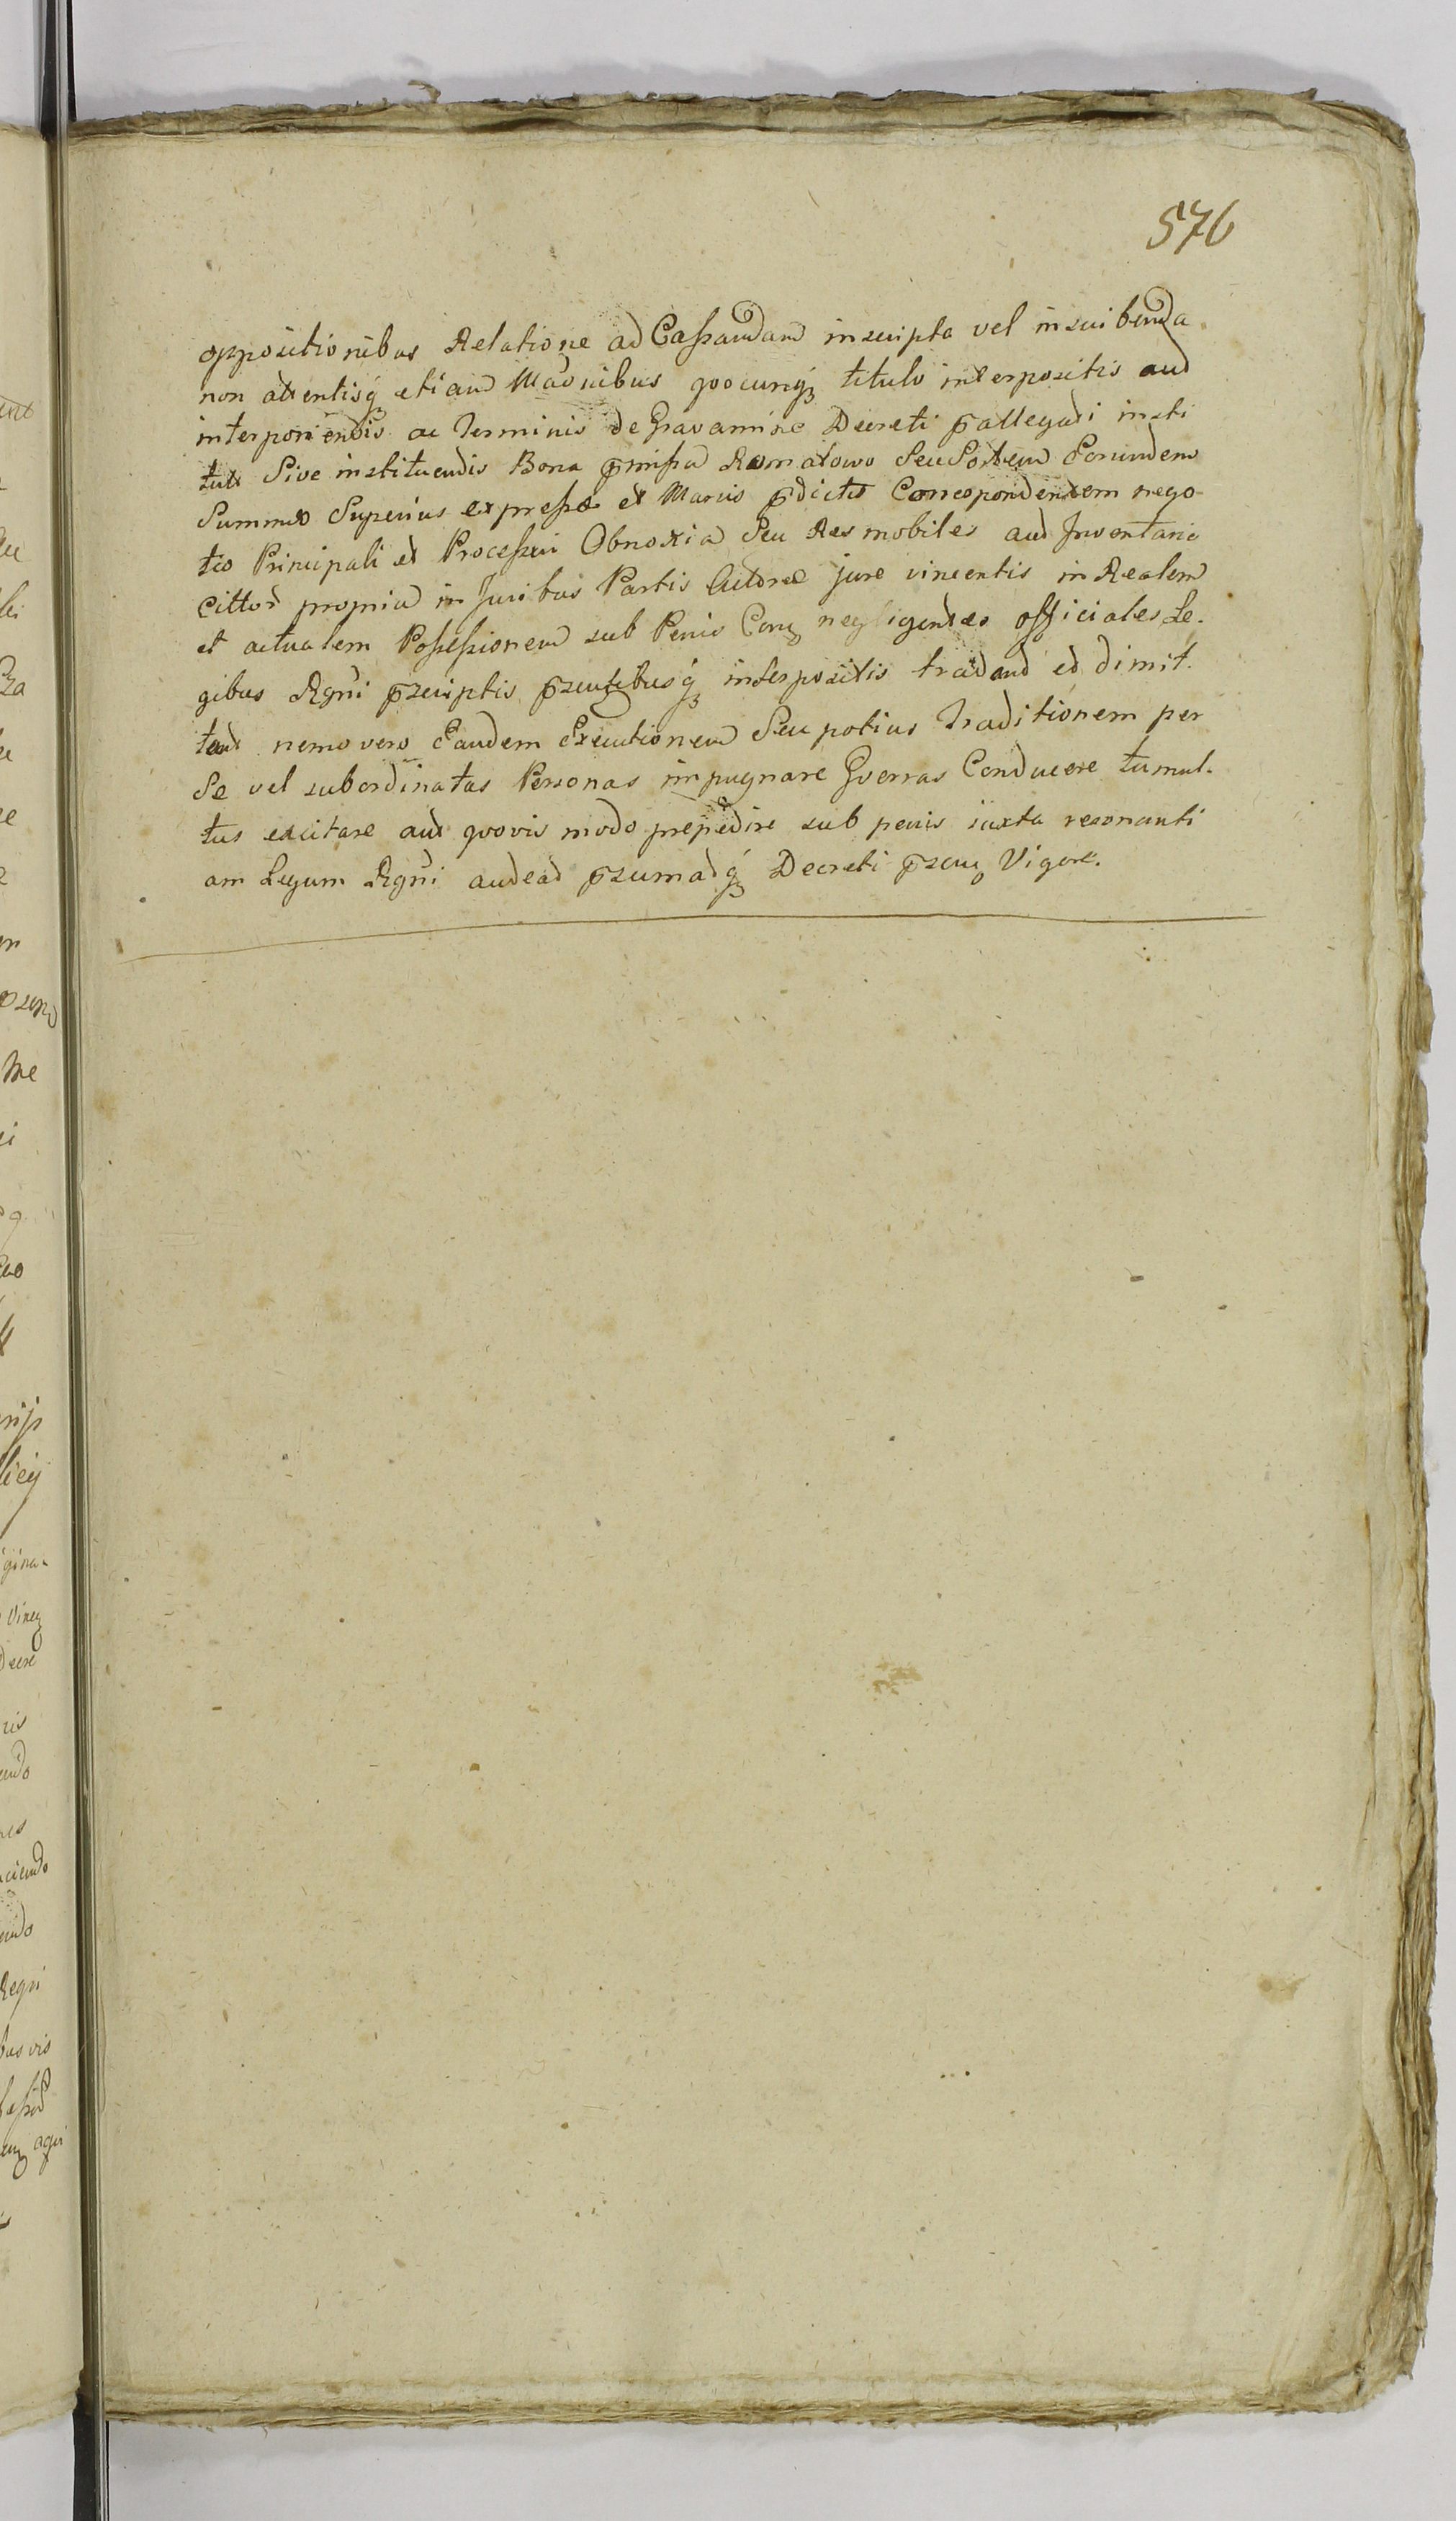 576
oppositionibus Relatione ad Cassandam inscripta vel inscribenda
non attentisq; etiam Maonibus qvocunq; titulo interpositis aut
interponendis ac Terminis de Gravamine Decreti p̄allegati insti
tut Sive instituendis Bona p̄missa Romatowo Seu Sortem Eorundem
Summæ Superius expressæ et Marcis p̄dictis Correspondentem nego-
tio Principali et Processui Obnoxia Seu Res mobiles aut Inventario
Cittor propria in Juribus Partis Actoreæ jure vincentis in Realem
et actualem Possessionem sub Penis Con negligentes officiales Le-
gibus Rgni p̄scriptis p̄sentibusq; interpositis tradant et dimit-
tant nemo vero Eandem Executionem Seu potius Traditionem per
Se vel subordinatas Personas impugnare Gverras Conducere tumul-
tus excitare aut qvovis modo prepedire sub penis iuxta resonanti
am Legum Rgni audeat p̄sumatq; Decreti p̄sen Vigore.